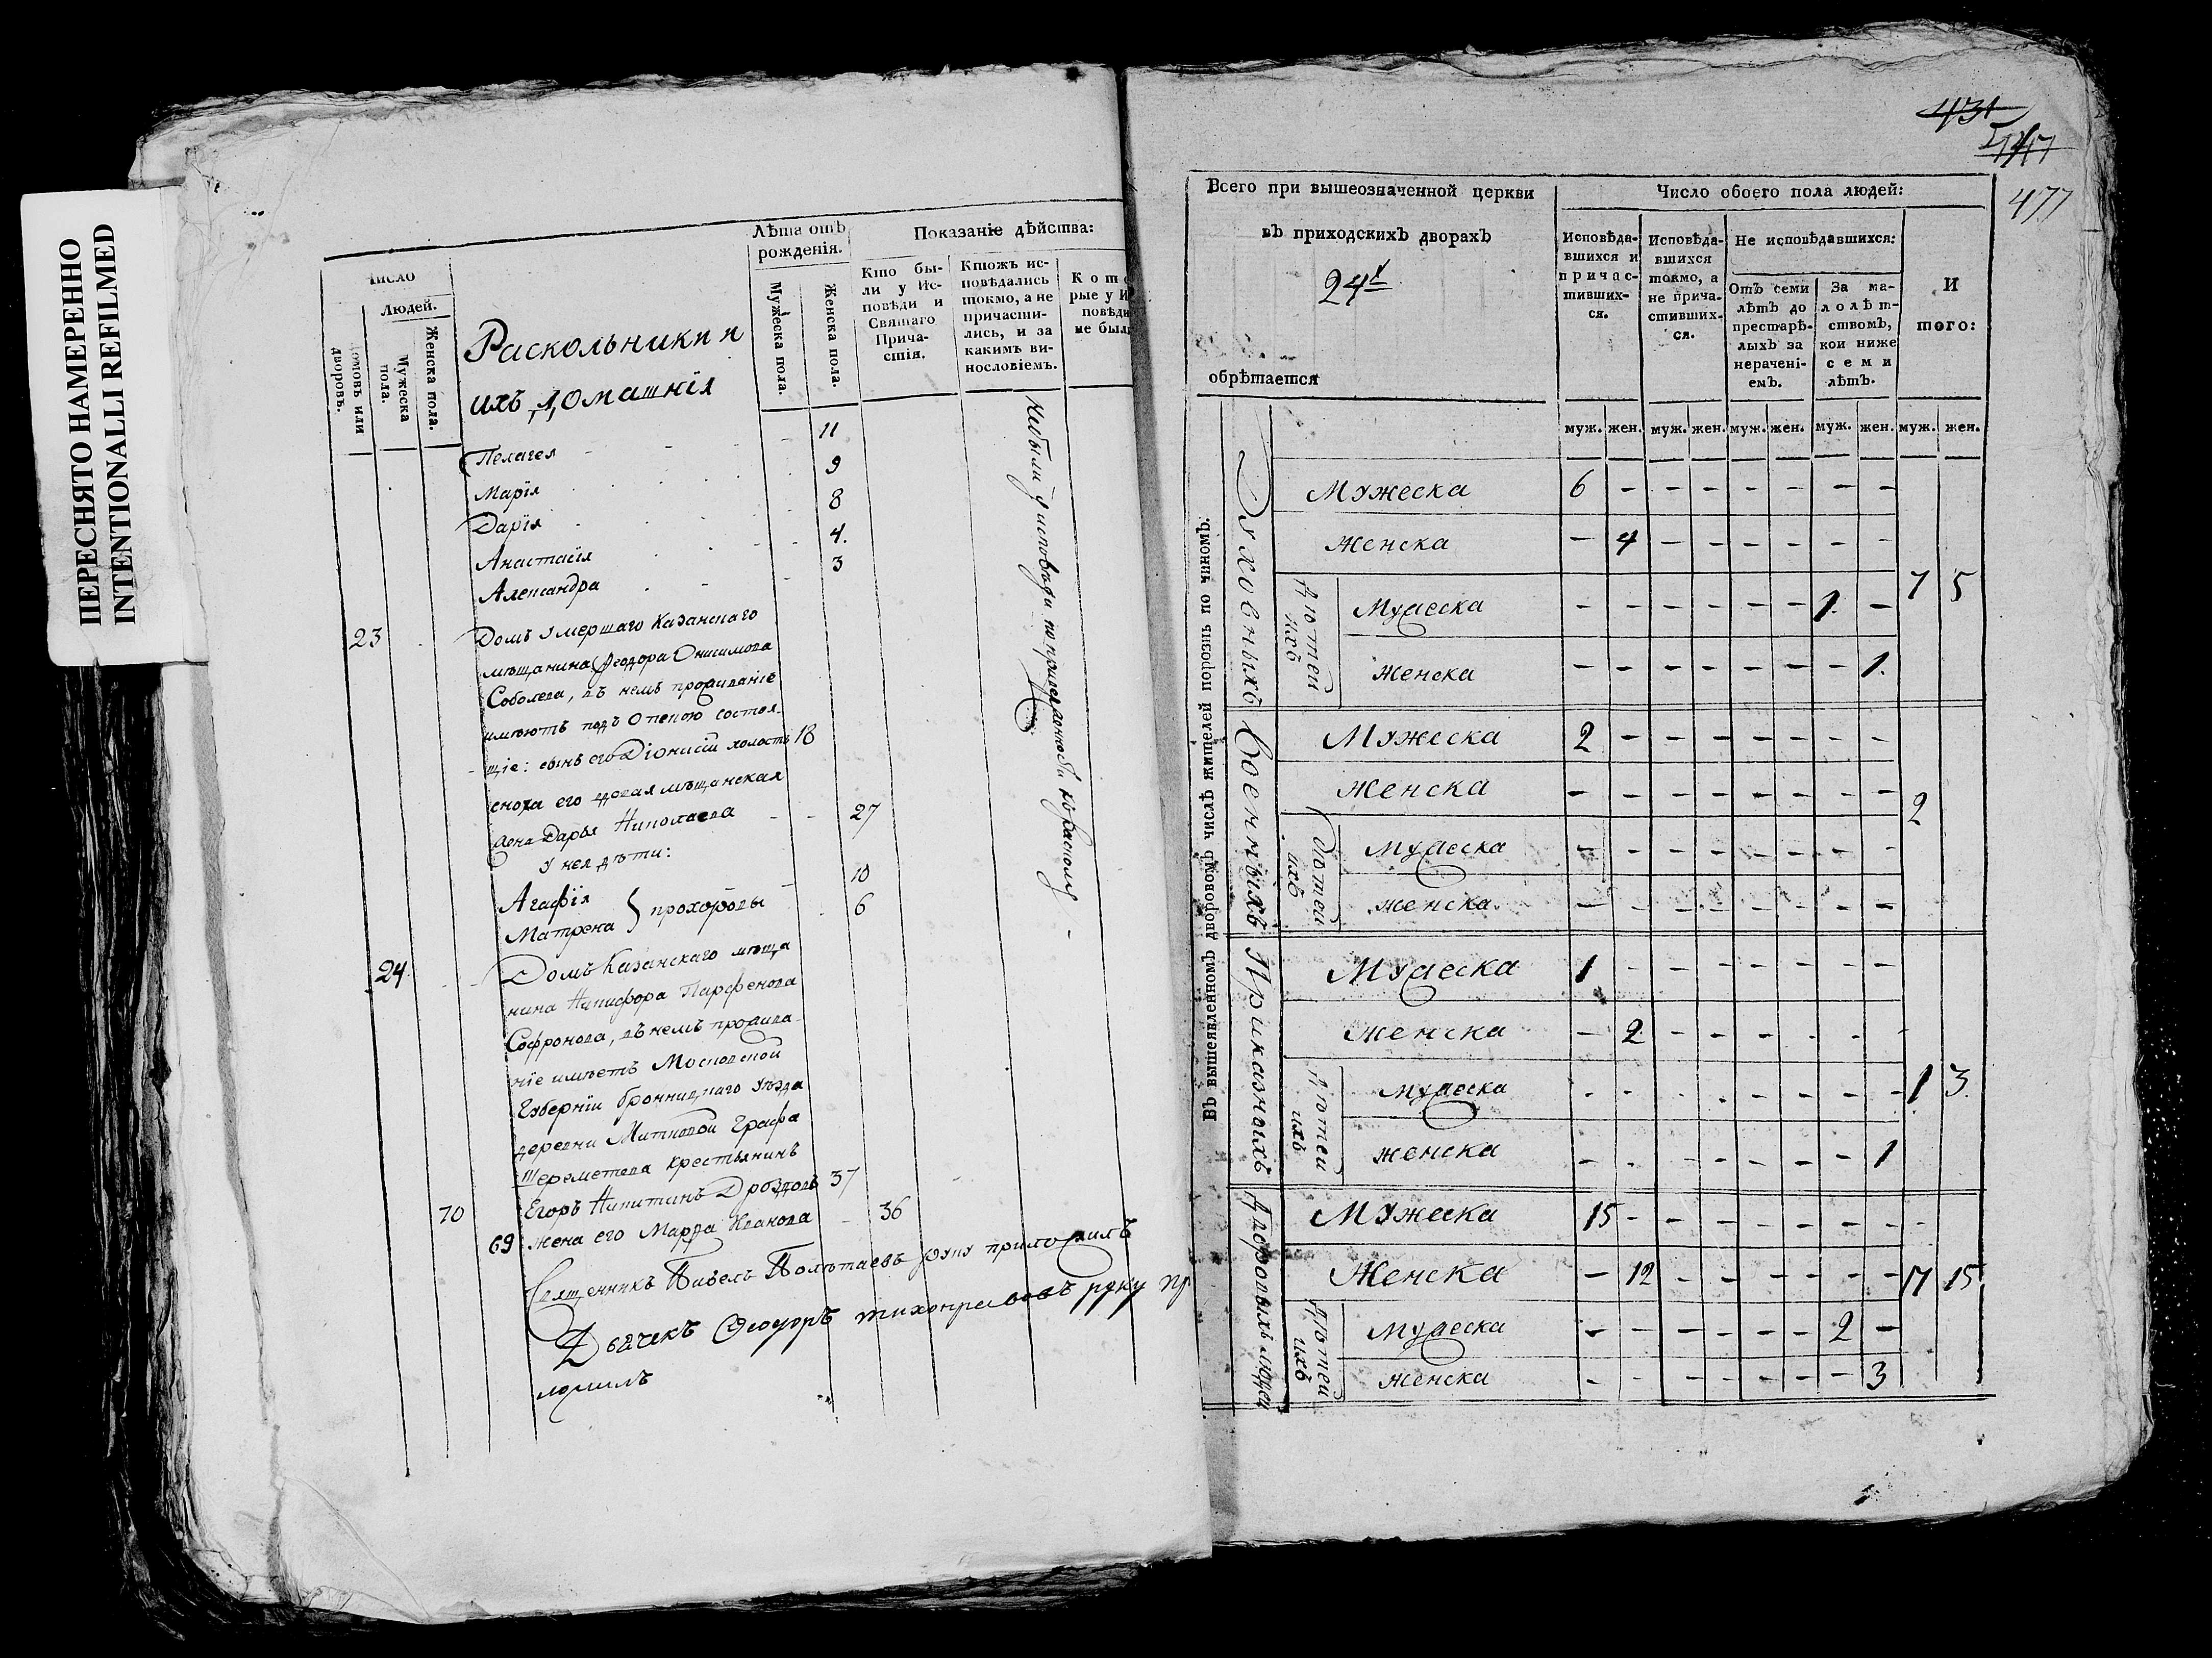 ПЕРЕСНЯТО НАМЕРЕННО
INTENTIONALLI REFILMED
число
Людей.
домовъ или дворовъ.
Мужеска пола.
Женска пола.
Раскольники и
ихъ домашнїя
Лѣта отъ рожденія.
Мужеска пола.
Женска пола.
Показаніе дѣйства:
Кто бы-
ли у Ис-
повѣди и
Святаго
Прича-
стія.
Ктожъ ис-
повѣдались
токмо, а не
причасти-
лись, и за
какимъ ви-
нословіемъ.
Кото
рые у И
повѣди
не были
Пелагея 11
Марїя 9
Дарїя 8
Анастасїя 4.
Александра 3
небыли у исповеди по приверженности къ расколу
23 Домъ умершаго Казанскаго
мѣщанина Ѳеодора Онисимова
Соболева, въ немъ проживанїе
имѣютъ подъ опекою состоя-
щїе: сынъ его Дїонисїй холостъ 18
сноха его вдовая мѣщанская
жена Дарья Николаева 27
у нея дѣти:
Агафїя 10
Матрена } прохоровы 6
24. Домъ Казанскаго мѣща
нина Никифора Парфенова
Софронова, въ немъ прожива
нїе имѣетъ Московской
Губернїи бронницкаго уѣзда
деревни Митковой Графа
Шереметева крестьянинъ
70 Егоръ Никитинъ Дроздовъ 37
69 жена его Марѳа Иванова 36
Священникъ Павелъ Полетаевъ руку приложилъ
Дьячекъ Ѳеодоръ тихонравовъ руку пр
ложилъ
431
477
Всего при вышеозначенной церкви
въ приходскихъ дворахъ
24
обрѣтается
Число обоего пола людей:
Исповѣда-
вшихся и
причас-
тивших-
ся.
Исповѣда-
вшихся
токмо, а
не прича-
стивших-
ся.
Не исповѣдавшихся:
Отъ семи
лѣтъ до
престарѣ-
лыхъ за
нерачені-
емъ.
За ма-
лолѣт-
ствомъ,
кои ниже
семи
лѣтъ.
И
того:
муж. жен. муж. жен. муж. жен. муж. жен. муж. жен.
Въ вышеявленномъ дворовомъ числѣ жителей порознь по чиномъ.
Духовныхъ
Мужеска 6 - - - - - - -
Женска - 4 - - - - - -
Дѣтей ихъ
Мужеска - - - - - - 1. -
Женска - - - - - - - 1.
7 5
Военныхъ
Мужеска 2 - - - - - - -
Женска - - - - - - - -
Дѣтей ихъ
Мужеска - - - - - - - -
Женска - - - - - - - -
2
Приказныхъ
Мужеска 1 - - - - - - -
Женска - 2 - - - - - -
Дѣтей ихъ
Мужеска - - - - - - - -
Женска - - - - - - - 1
1 3.
Дворовыхъ людей
Мужеска 15 - - - - - - -
Женска - 12 - - - - - -
Дѣтей ихъ
Мужеска - - - - - - 2 -
Женска - - - - - - - 3
17 15